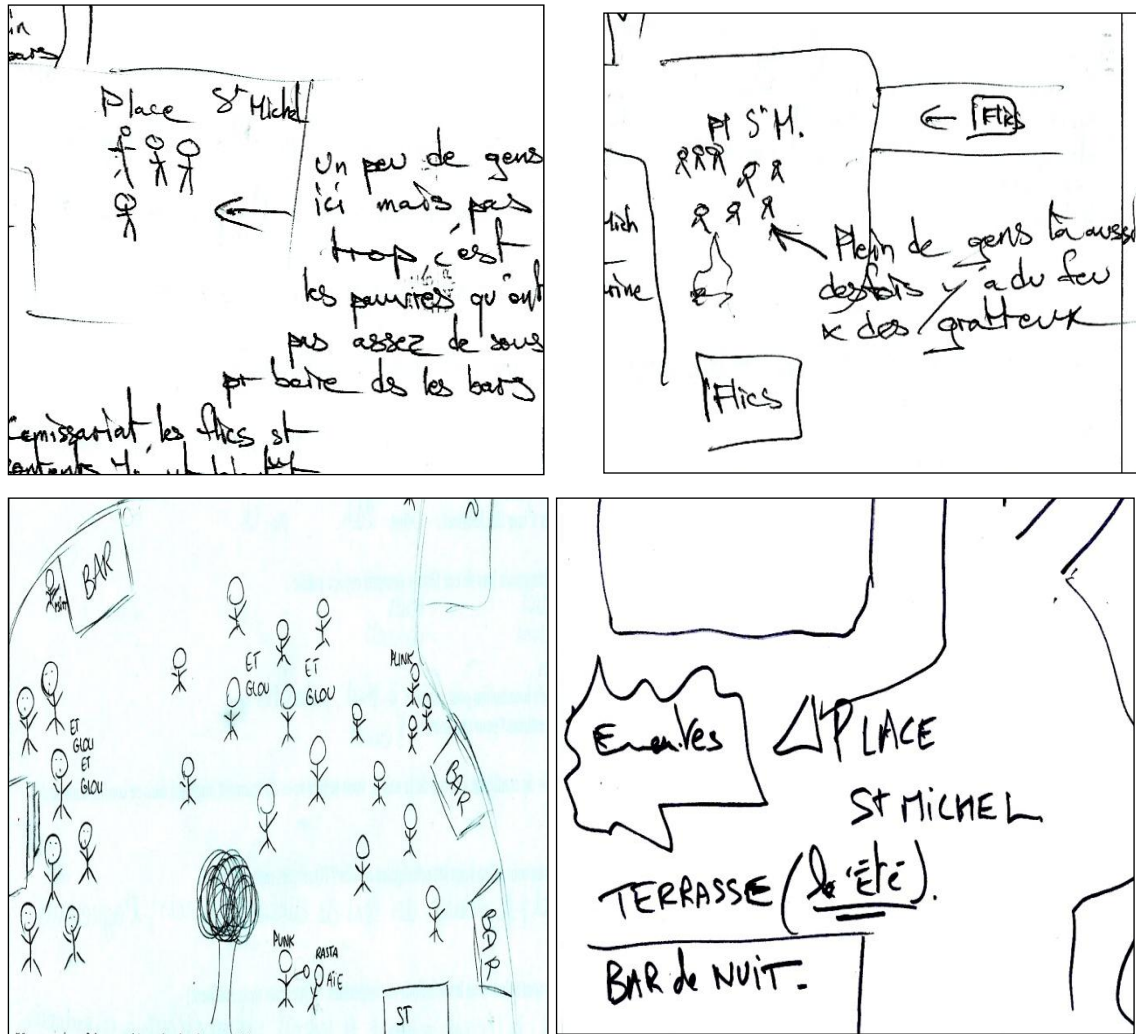 in
bars
Place St Michel
Un peu de gens
ici mais pas
trop c'est
les pauvres qu'ont
pas assez de sous
pr boire ds les bars
Comissariat les flics st
Pl St M.
← Flics
Plein de gens là aussi
desfois y a du feu
x des gratteux
Flics
BAR
ET
GLOU
ET
GLOU
PUNK
ET
GLOU
ET
GLOU
BAR
BAR
PUNK
RASTA
AÏE
ST
Emeutes
PLACE
St MICHEL
TERRASSE (l'Été).
BAR de NUIT.